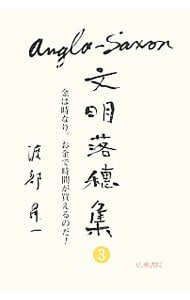 Anglo-Saxon
文明落穗集
3
金は時なり。お金で時間が買えるのだ!
渡部昇一
広瀬書院